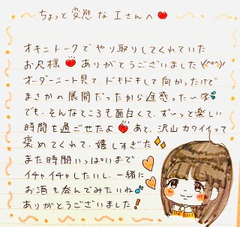 ちょっと変態な Iさんへ
オキニトークでやり取りしてくれていた
お兄様 ありがとうございました
オーダーニット見て ドキドキして向かったけど
まさかの展開だったから焦った〜
でも、そんなところも面白くて、ずーっと楽しい
時間を過ごせたよ あと、沢山カワイイって
褒めてくれて 嬉しすぎた
また時間いっぱいまで
イチャイチャしたいし、一緒に
お酒も呑んでみたいね
ありがとうございました!